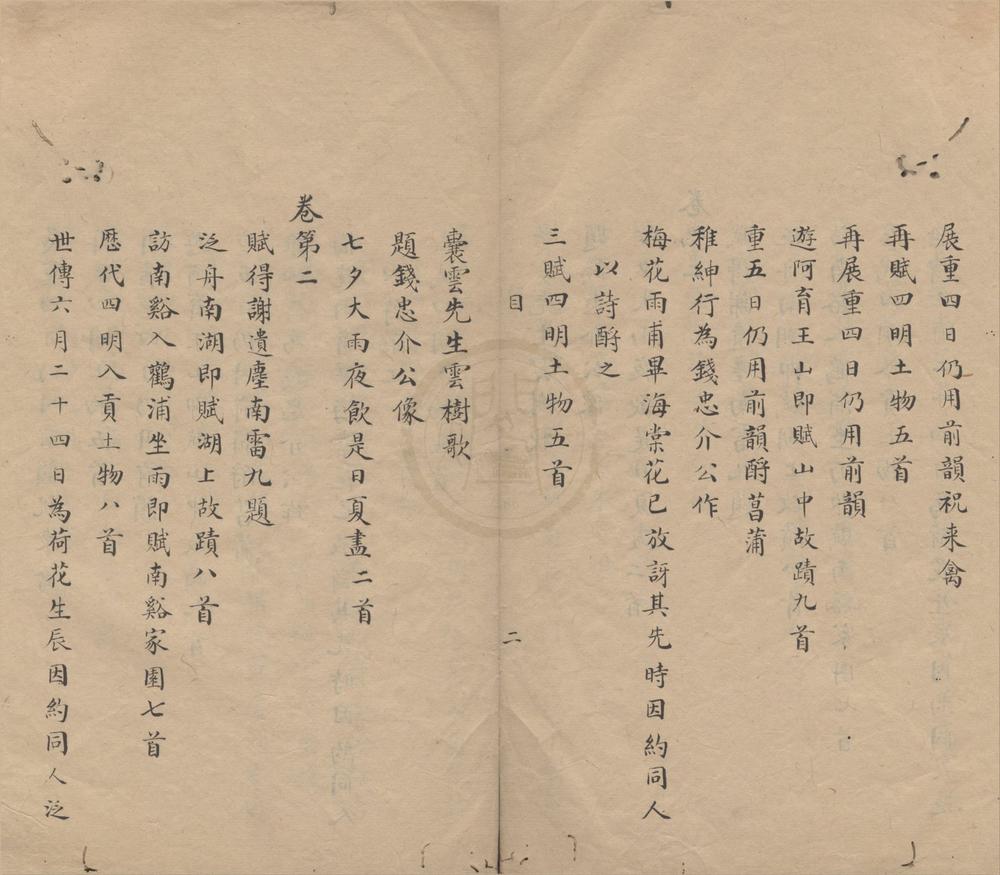 展重四日仍用前韻祝来禽
再賦四明土物五首
再展重四日仍用前韻
遊阿育王山即賦山中故蹟九首
重五日仍用前韻酹菖蒲
稚紳行為錢忠介公作
梅花雨甫畢海棠花已放訝其先時因約同人
以詩酹之
三賦四明土物五首
目
二
囊雲先生雲樹歌
題錢忠介公像
七夕大雨夜飲是日夏盡二首
卷第二
賦得謝遺塵南雷九題
泛舟南湖即賦湖上故蹟八首
訪南谿入鸛浦坐雨即賦南谿家園七首
歷代四明入貢土物八首
世傳六月二十四日為荷花生辰因約同人泛